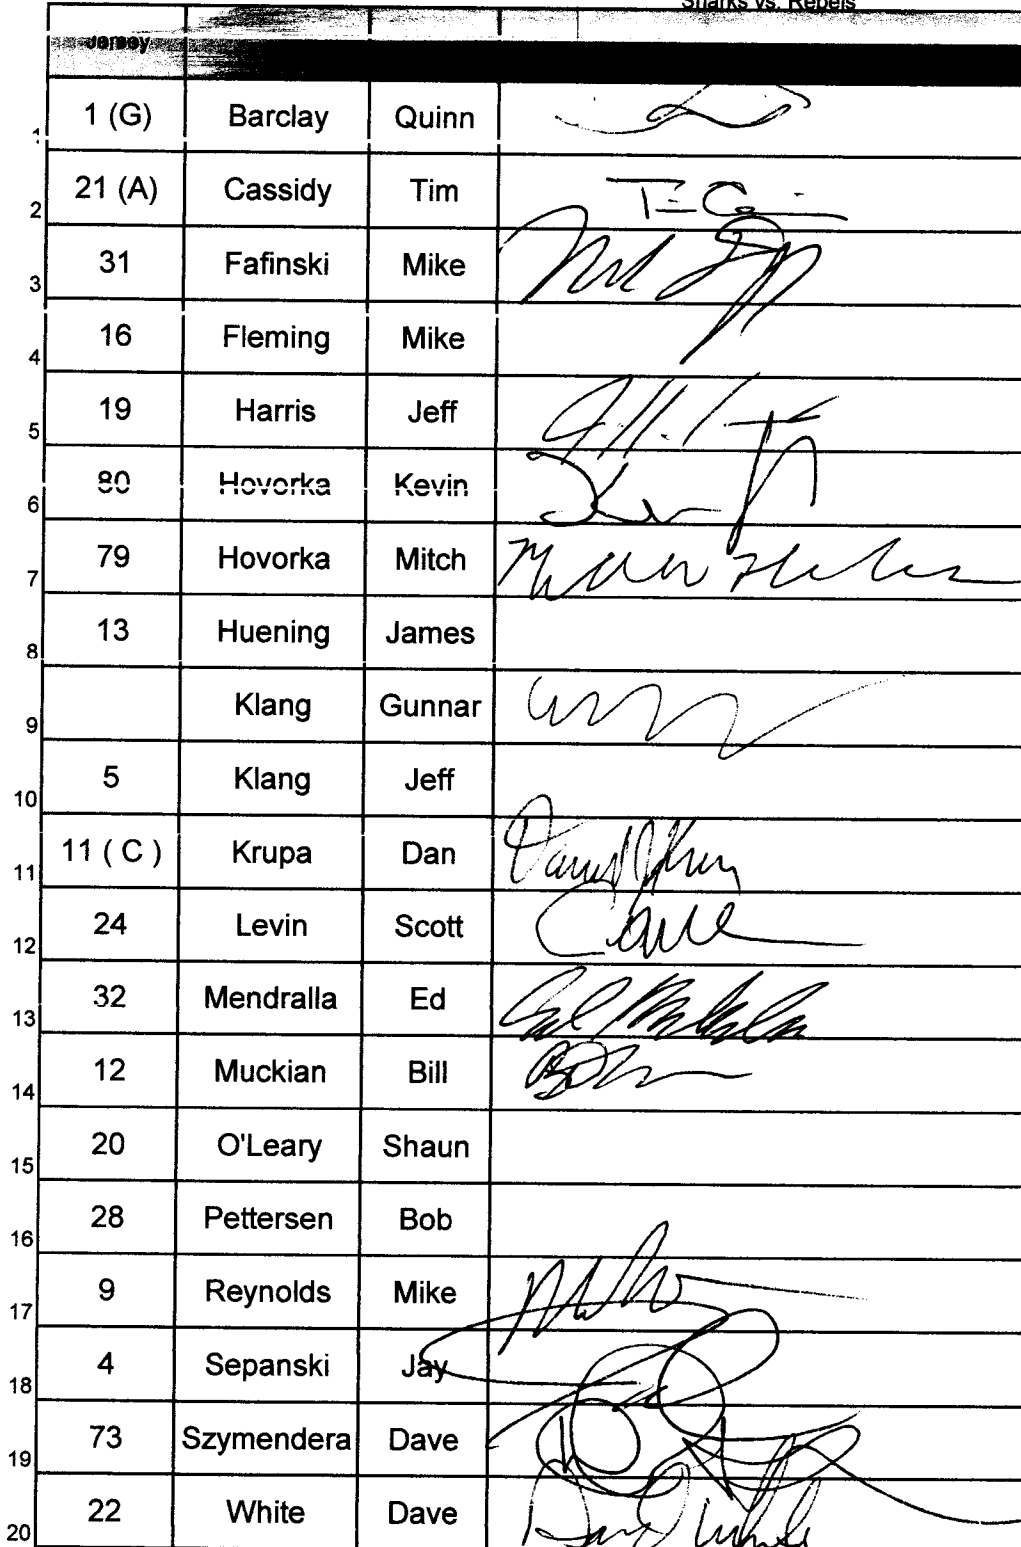 Sharks vs. Rebels
Jersey
1 1 (G) Barclay Quinn
2 21 (A) Cassidy Tim
3 31 Fafinski Mike
4 16 Fleming Mike
5 19 Harris Jeff
6 80 Hovorka Kevin
7 79 Hovorka Mitch
8 13 Huening James
9 Klang Gunnar
10 5 Klang Jeff
11 11 ( C ) Krupa Dan
12 24 Levin Scott
13 32 Mendralla Ed
14 12 Muckian Bill
15 20 O'Leary Shaun
16 28 Pettersen Bob
17 9 Reynolds Mike
18 4 Sepanski Jay
19 73 Szymendera Dave
20 22 White Dave